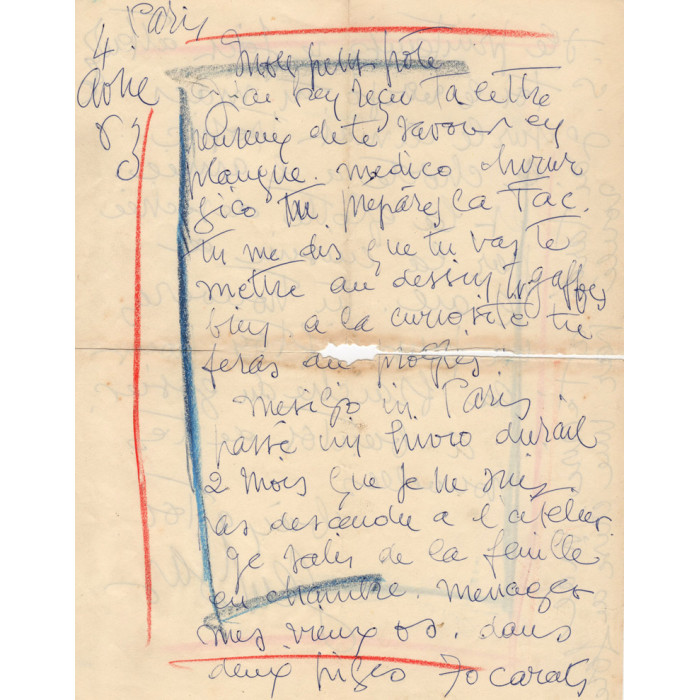 Paris
4
83
Mon petit pôte
j'ai bien reçu ta lettre
heureux de te savoir en
planque. médico chirur
gico tu prépares ca Tac.
tu me dis que tu vas te
mettre au dessin tu gaffes
bien a la curiosité tu
feras du progrès.
mesigo in Paris.
passé un hivio durail
2 mois que je ne suis
pas descendu a l'atelier.
Je salis de la feuille
en chambre. menager
mes vieux os. dans
deux piges 70 carats